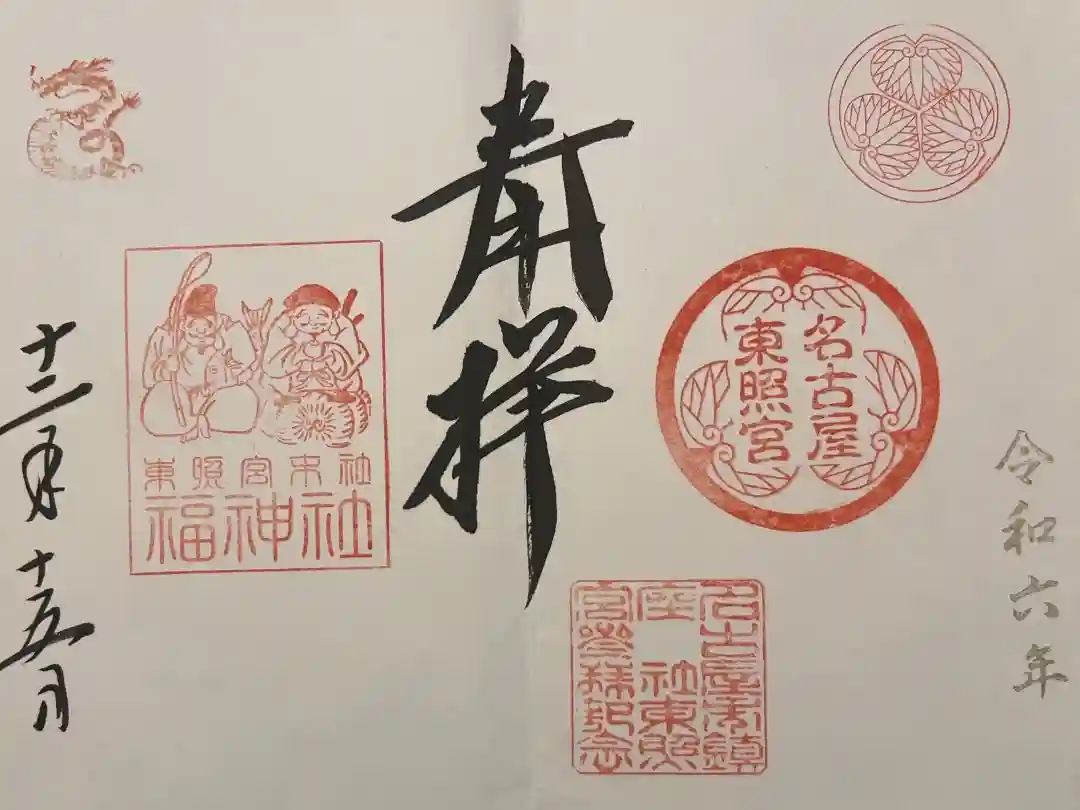 令和六年
名古屋
東照宮
名古屋市鎮
座 社東照
宮參拜記念
奉拝
東照宮末社
福神社
十二月十五日